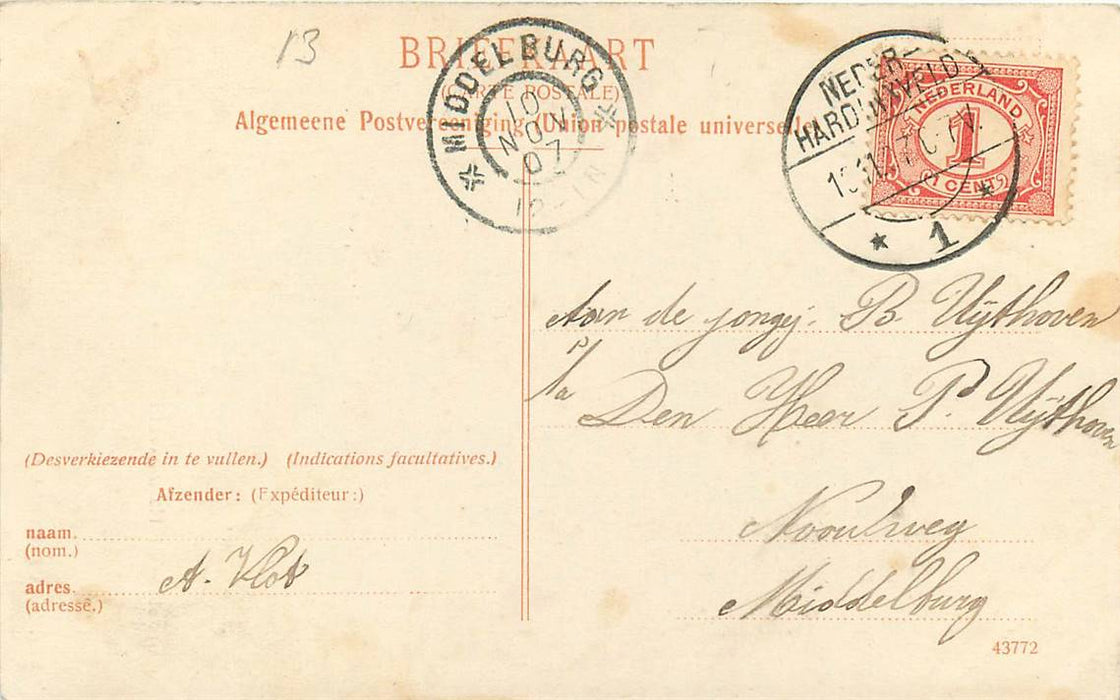 13
BRIEFKAART
(CARTE POSTALE)
Algemeene Postvereeniging (Union postale universelle)
MIDDELBURG
10
NOV
07
12-1N
NEDER-
HARDINXVELD
7V.
1
NEDERLAND
1
1 CENT
Aan de jongej. B Uijthoven
p/a Den Heer P. Uijthoven
Middelburg
(Desverkiezende in te vullen.) (Indications facultatives.)
Afzender: (Expéditeur:)
naam.
(nom.)
adres.
(adresse.)
A. Vlot
43772